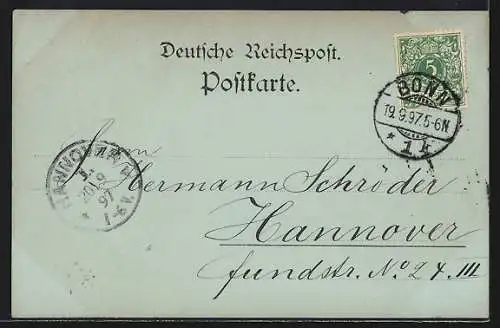 Deutsche Reichspost.
Postkarte.
5
BONN
19.9.97.5-6N
* 1 k
HANNOVER
20.9
97
Herrn
Hermann Schröder
Hannover
fundstr. No 24 III